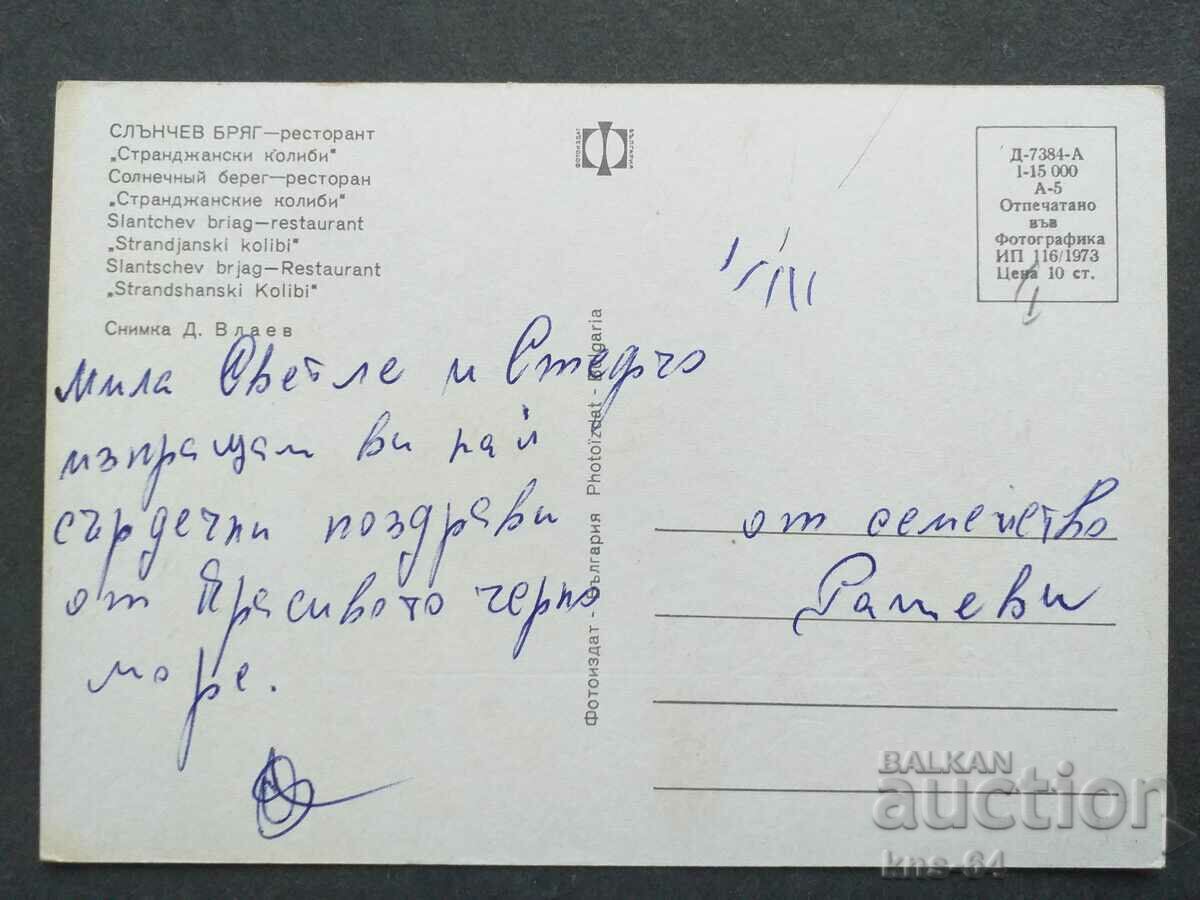 СЛЪНЧЕВ БРЯГ—ресторант
„Странджански колиби"
Солнечный берег—ресторан
„Странджанские колиби"
Slantchev briag—restaurant
„Strandjanski kolibi"
Slantschev brjag—Restaurant
„Strandshanski Kolibi"
Снимка Д. Влаев
Мила Светле и
изпращам ви най
сърдечни поздрави
от красивото черно
море.
ФОТОИЗДАТ
БЪЛГАРИЯ
Фотоиздат - България Photoïzdat - Bulgaria
Д-7384-А
1-15 000
А-5
Отпечатано
във
Фотографика
ИП 116/1973
Цена 10 ст.
от семейство
Рашеви
BALKAN
auction
kns-64